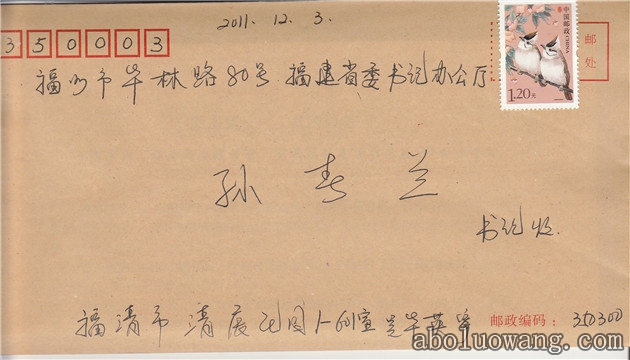 2011.12.3.
350003
中国邮政 CHINA
1.20元
邮
处
福州市华林路80号 福建省委书记办公厅
孙春兰
书记收
福清市清展花园
邮政编码: 350300
aboluowang.com